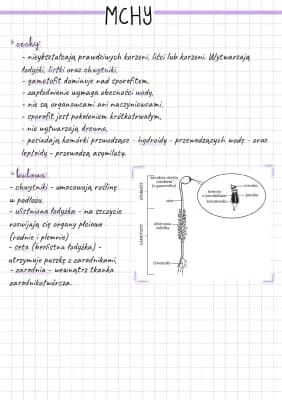 MCHY
cechy:
- niewykształcają prawdziwych korzeni, liści lub korzeni. Wytwarzają
łodyżki, listki oraz chwytniki,
- gametofit dominuje nad sporofitem,
- zapłodnienie wymaga obecności wody,
- nie są organowcami ani naczyniowcami,
- sporofit jest pokoleniem krótkotrwałym,
- nie wytwarzają drewna,
- posiadają komórki przewodzące - hydroidy - przewodzących wodę - oraz
leptoidy - przewodzą asymilaty.
budowa:
- chwytniki - umocowują roślinę
w podłożu,
- ulistniona łodyżka - na szczycie
rozwijają się organy płciowe
(rodnie i plemnie)
- seta (bezlistna łodyżka) -
utrzymuje puszkę z zarodnikami,
- zarodnia - wewnątrz tkanka
zarodnikotwórcza.
SPOROFIT
GAMETOFIT
seta
ulistniona
łodyżka
chwytniki
wieczko
puszka